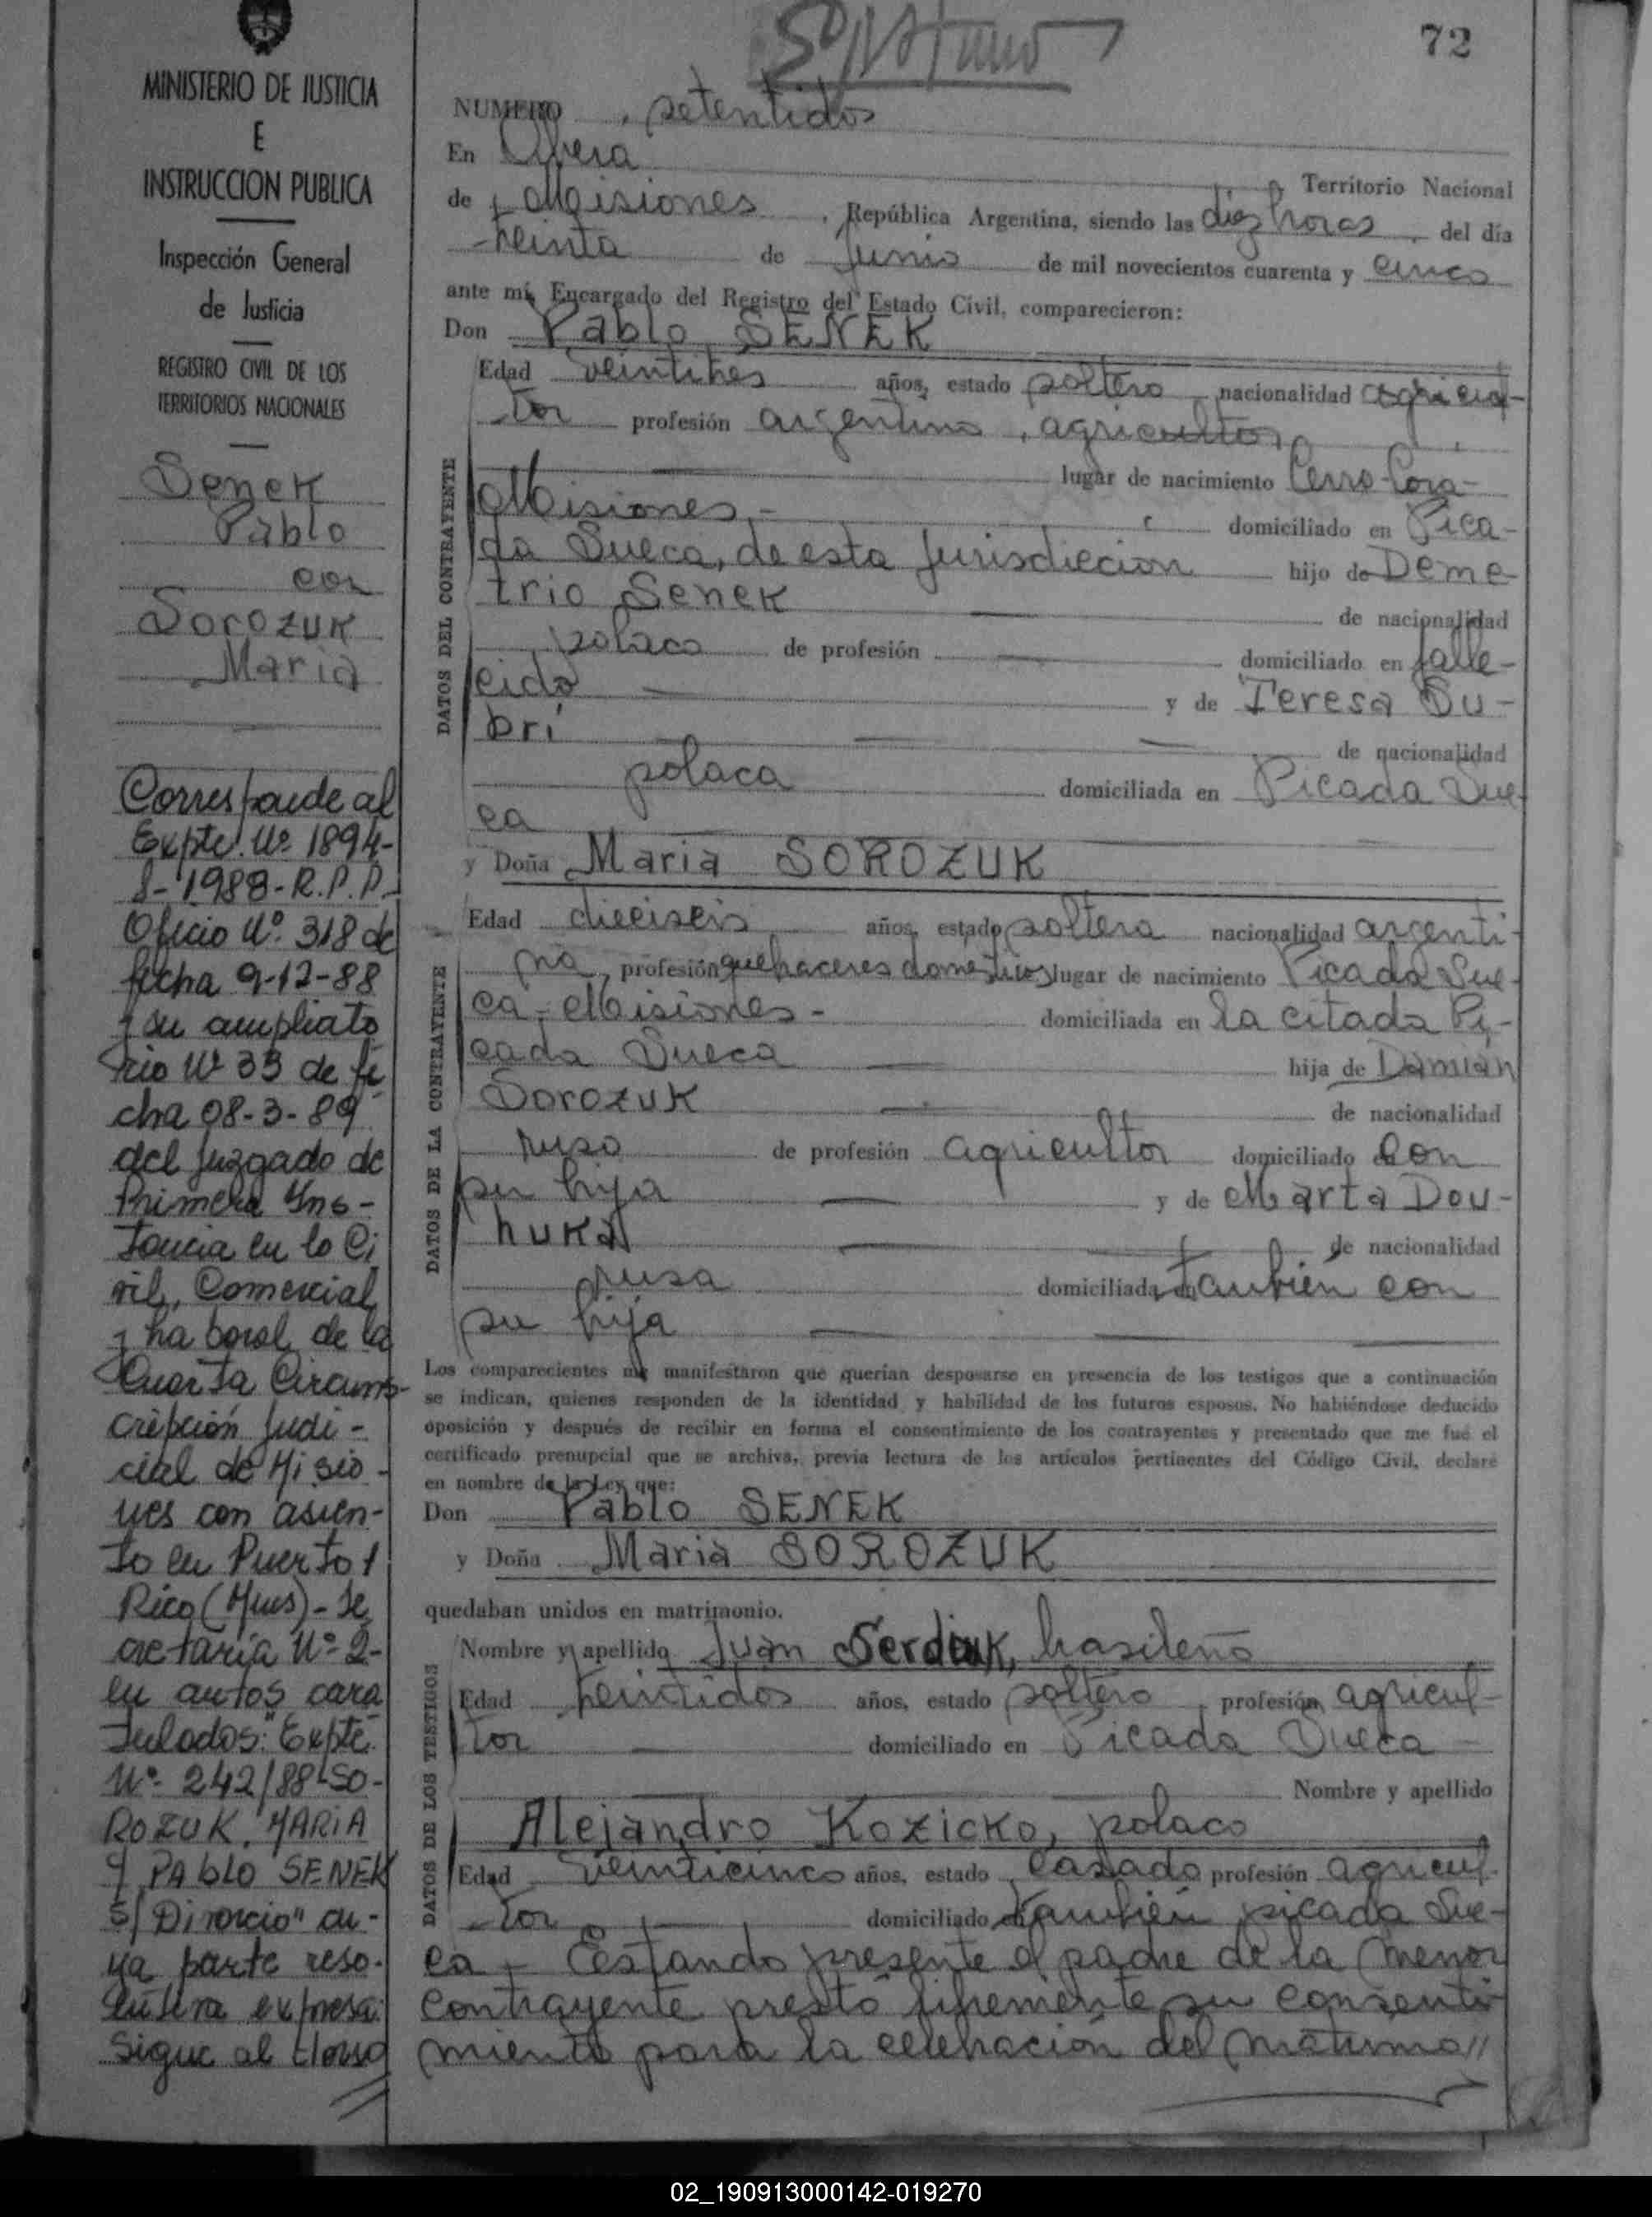 72
MINISTERIO DE JUSTICIA
E
INSTRUCCION PUBLICA
Inspección General
de Justicia
REGISTRO CIVIL DE LOS
TERRITORIOS NACIONALES
Senek
Pablo
con
Sorozuk
Maria
Corresponde al
Expte. Nº 1894-
S-1988-R.P.P.
Oficio Nº 318 de
fecha 9-12-88
y su ampliato
rio Nº 33 de fe
cha 08-3-89
del Juzgado de
Primera Ins-
tancia en lo Ci
vil, Comercial
y Laboral de la
Cuarta Circuns-
cripción Judi-
cial de Misio-
nes con asien-
to en Puerto
Rico (Mnes)-Se
cretaría Nº 2-
en autos cara
tulados: "Expte.
Nº 242/88-SO-
ROZUK, MARIA
c/ PABLO SENEK
s/ Divorcio" cu-
ya parte reso-
lutiva expresa:
Sigue al dorso
NUMERO setentidos
En Obera Territorio Nacional
de Misiones, República Argentina, siendo las diez horas, del día
treinta de Junio de mil novecientos cuarenta y cinco
ante mí, Encargado del Registro del Estado Civil, comparecieron:
Don Pablo SENEK
Edad veintitres años, estado soltero nacionalidad agricul-
tor profesión argentino, agricultor
lugar de nacimiento Cerro-Corá-
Misiones,- domiciliado en Pica-
da Sueca, de esta jurisdiccion hijo de Deme-
trio Senek de nacionalidad
polaco de profesión domiciliado en falle-
cido y de Teresa Su-
bri de nacionalidad
polaca domiciliada en Picada Sue-
ca
y Doña Maria SOROZUK
Edad dieciseis años, estado soltera nacionalidad argenti-
na, profesión quehaceres domesticos lugar de nacimiento Picada Sue-
ca, Misiones- domiciliada en la citada Pi-
cada Sueca hija de Damián
Sorozuk de nacionalidad
ruso de profesión agricultor domiciliado con
su hija y de Marta Dou-
huka de nacionalidad
rusa domiciliada también con
su hija
Los comparecientes me manifestaron que querían desposarse en presencia de los testigos que a continuación
se indican, quienes responden de la identidad y habilidad de los futuros esposos. No habiéndose deducido
oposición y después de recibir en forma el consentimiento de los contrayentes y presentado que me fué el
certificado prenupcial que se archiva, previa lectura de los artículos pertinentes del Código Civil, declaré
en nombre de la Ley que:
Don Pablo SENEK
y Doña Maria SOROZUK
quedaban unidos en matrimonio.
Nombre y apellido Juan Serdiuk, brasileño
Edad treintidos años, estado soltero, profesión agricul-
tor domiciliado en Picada Sueca
Nombre y apellido
Alejandro Kozicko, polaco
Edad veinticinco años, estado casado profesión agricul-
tor domiciliado también picada Sue-
ca - Estando presente el padre de la menor
contrayente prestó libremente su consenti-
miento para la celebración del matrimo//
DATOS DEL CONTRAYENTE
DATOS DE LA CONTRAYENTE
DATOS DE LOS TESTIGOS
02_190913000142-019270